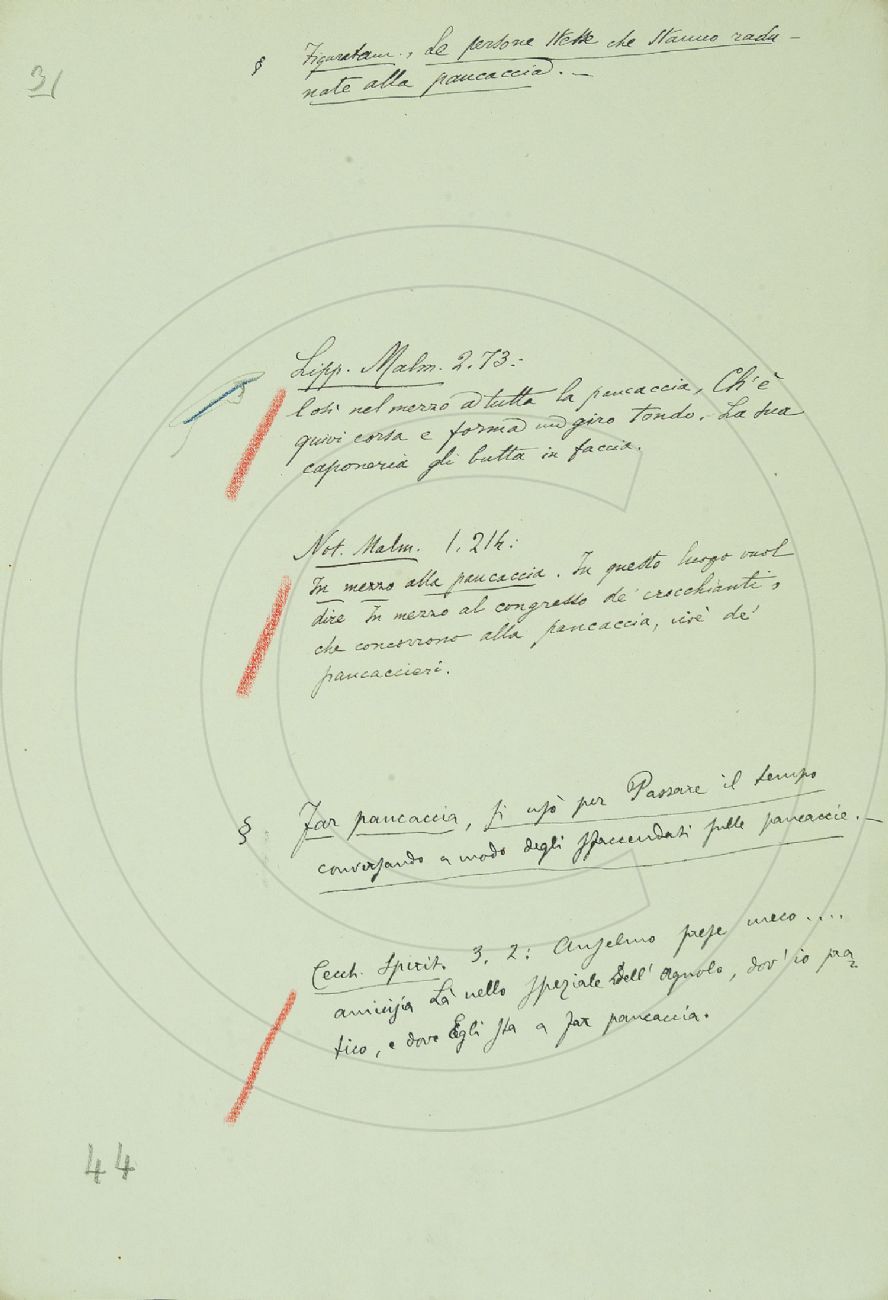 3/
§ Figuratam., Le persone stesse che stanno radu-
nate alla pancaccia. —
Lipp. Malm. 2. 73:
Così nel mezzo a tutta la pancaccia, Ch'è
quivi corsa e forma un giro tondo. La sua
caponeria gli butta in faccia.
Not. Malm. 1. 214:
In mezzo alla pancaccia. In questo luogo vuol
dire In mezzo al congresso de' crocchianti,
che concorrono alla pancaccia, cioè de'
pancaccieri.
§ Far pancaccia, si usò per Passare il tempo
conversando a modo degli sfaccendati sulle pancaccie. —
Cecch. Spirit. 3. 2: Anselmo prese meco....
amicizia Là nello speziale Dell' Agnolo, dov' io pra-
tico, e dove Egli sta a far pancaccia.
44